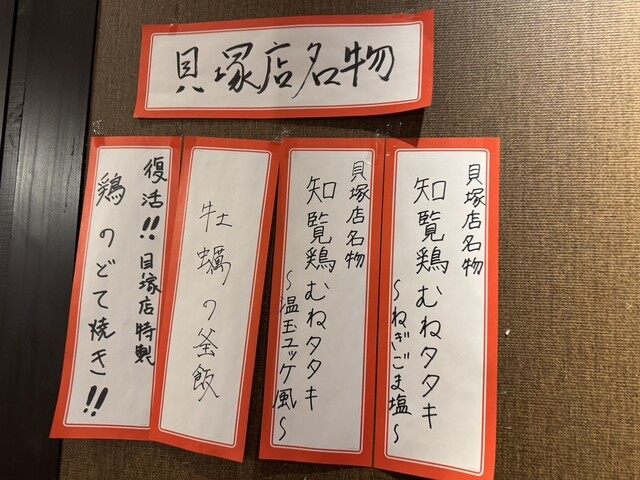 貝塚店名物
貝塚店名物
知覧鶏むねタタキ
〜ねぎごま塩〜
貝塚店名物
知覧鶏むねタタキ
〜温玉ユッケ風〜
牡蠣の釜飯
復活!!貝塚店特製
鶏のどて焼き!!